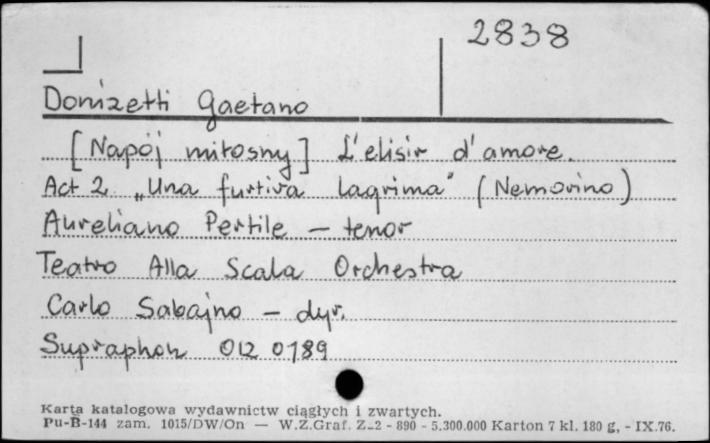 2838
Donizetti Gaetano
[Napój miłosny] L'elisir d'amore.
Act 2 „Una furtiva lagrima" (Nemorino)
Aureliano Pertile - tenor
Teatro Alla Scala Orchestra
Carlo Sabajno - dyr.
Supraphon 012 0789
Karta katalogowa wydawnictw ciągłych i zwartych.
Pu-B-144 zam. 1015/DW/On — W.Z.Graf. Z-2 - 890 - 5.300.000 Karton 7 kl. 180 g, - IX.76.